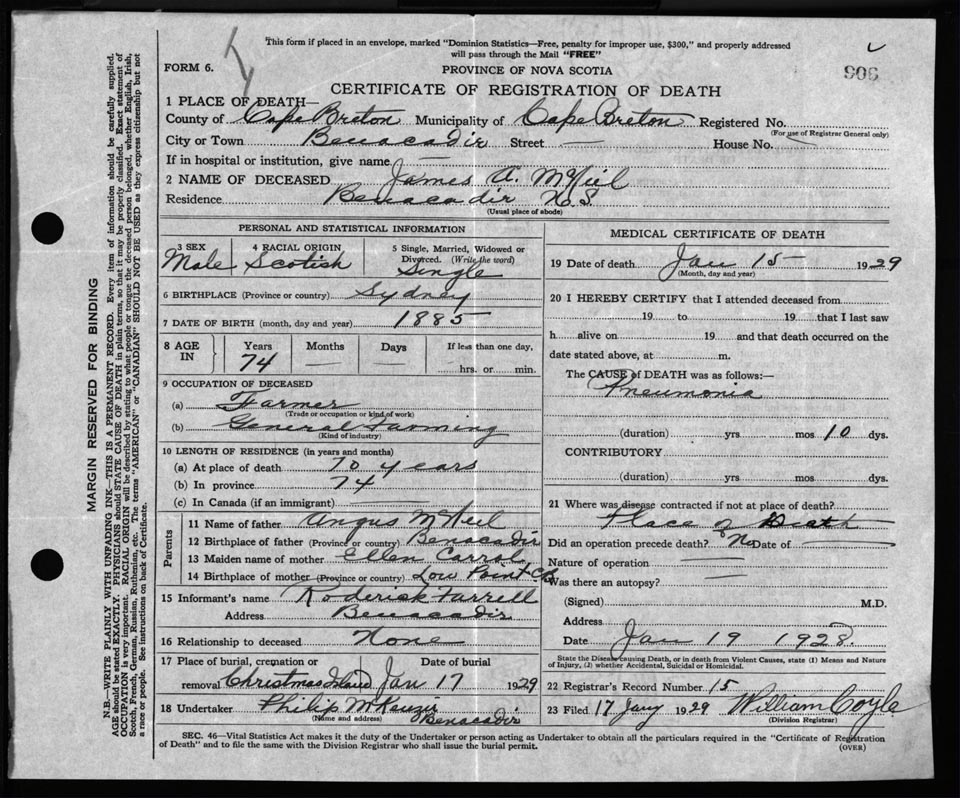 This form if placed in an envelope, marked "Dominion Statistics—Free, penalty for improper use, $300," and properly addressed
will pass through the Mail "FREE"
FORM 6.
PROVINCE OF NOVA SCOTIA
906
CERTIFICATE OF REGISTRATION OF DEATH
1 PLACE OF DEATH—
County of Cape Breton Municipality of Cape Breton Registered No.
(For use of Registrar General only)
City or Town Benacadir Street — House No.
If in hospital or institution, give name —
2 NAME OF DECEASED James A. McNeil
Residence Benacadir N.S.
(Usual place of abode)
PERSONAL AND STATISTICAL INFORMATION
3 SEX Male
4 RACIAL ORIGIN Scotish
5 Single, Married, Widowed or Divorced. (Write the word) Single
6 BIRTHPLACE (Province or country) Sydney
7 DATE OF BIRTH (month, day and year) 1885
8 AGE IN Years Months Days If less than one day,
74 — — hrs. or min.
9 OCCUPATION OF DECEASED
(a) Farmer
(Trade or occupation or kind of work)
(b) General Farming
(Kind of industry)
10 LENGTH OF RESIDENCE (in years and months)
(a) At place of death 70 years
(b) In province 74
(c) In Canada (if an immigrant) —
Parents
11 Name of father Angus McNeil
12 Birthplace of father (Province or country) Benacadir
13 Maiden name of mother Ellen Carral
14 Birthplace of mother (Province or country) Low Point C.B.
15 Informant's name Roderick Farrell
Address Benacadir
16 Relationship to deceased None
17 Place of burial, cremation or removal Christmas Island Date of burial Jan 17 1929
18 Undertaker Philip McKenzie
(Name and address) Benacadir
MEDICAL CERTIFICATE OF DEATH
19 Date of death Jan 15 1929
(Month, day and year)
20 I HEREBY CERTIFY that I attended deceased from
19 to 19 that I last saw
h alive on 19 and that death occurred on the
date stated above, at m.
The CAUSE of DEATH was as follows:—
Pneumonia
(duration) yrs mos 10 dys.
CONTRIBUTORY
(duration) yrs mos dys.
21 Where was disease contracted if not at place of death?
Place of Death
Did an operation precede death? No Date of —
Nature of operation —
Was there an autopsy? —
(Signed) M.D.
Address
Date Jan 19 1928
State the Disease causing Death, or in death from Violent Causes, state (1) Means and Nature
of Injury, (2) whether Accidental, Suicidal or Homicidal.
22 Registrar's Record Number 15
23 Filed 17 Jany 1929 William Coyle
(Division Registrar)
SEC. 46—Vital Statistics Act makes it the duty of the Undertaker or person acting as Undertaker to obtain all the particulars required in the "Certificate of Registration
of Death" and to file the same with the Division Registrar who shall issue the burial permit.
(OVER)
MARGIN RESERVED FOR BINDING
N.B.—WRITE PLAINLY WITH UNFADING INK—THIS IS A PERMANENT RECORD. Every item of information should be carefully supplied.
AGE should be stated EXACTLY. PHYSICIANS should STATE CAUSE OF DEATH in plain terms, so that it may be properly classified. Exact statement of
OCCUPATION is very important. RACIAL ORIGIN will be described by stating to what people or tongue the deceased person belonged, whether English, Irish,
Scotch, French, German, Russian, Ruthenian, etc. The terms "AMERICAN" or "CANADIAN" SHOULD NOT BE USED as they express citizenship but not
a race or people. See instructions on back of Certificate.